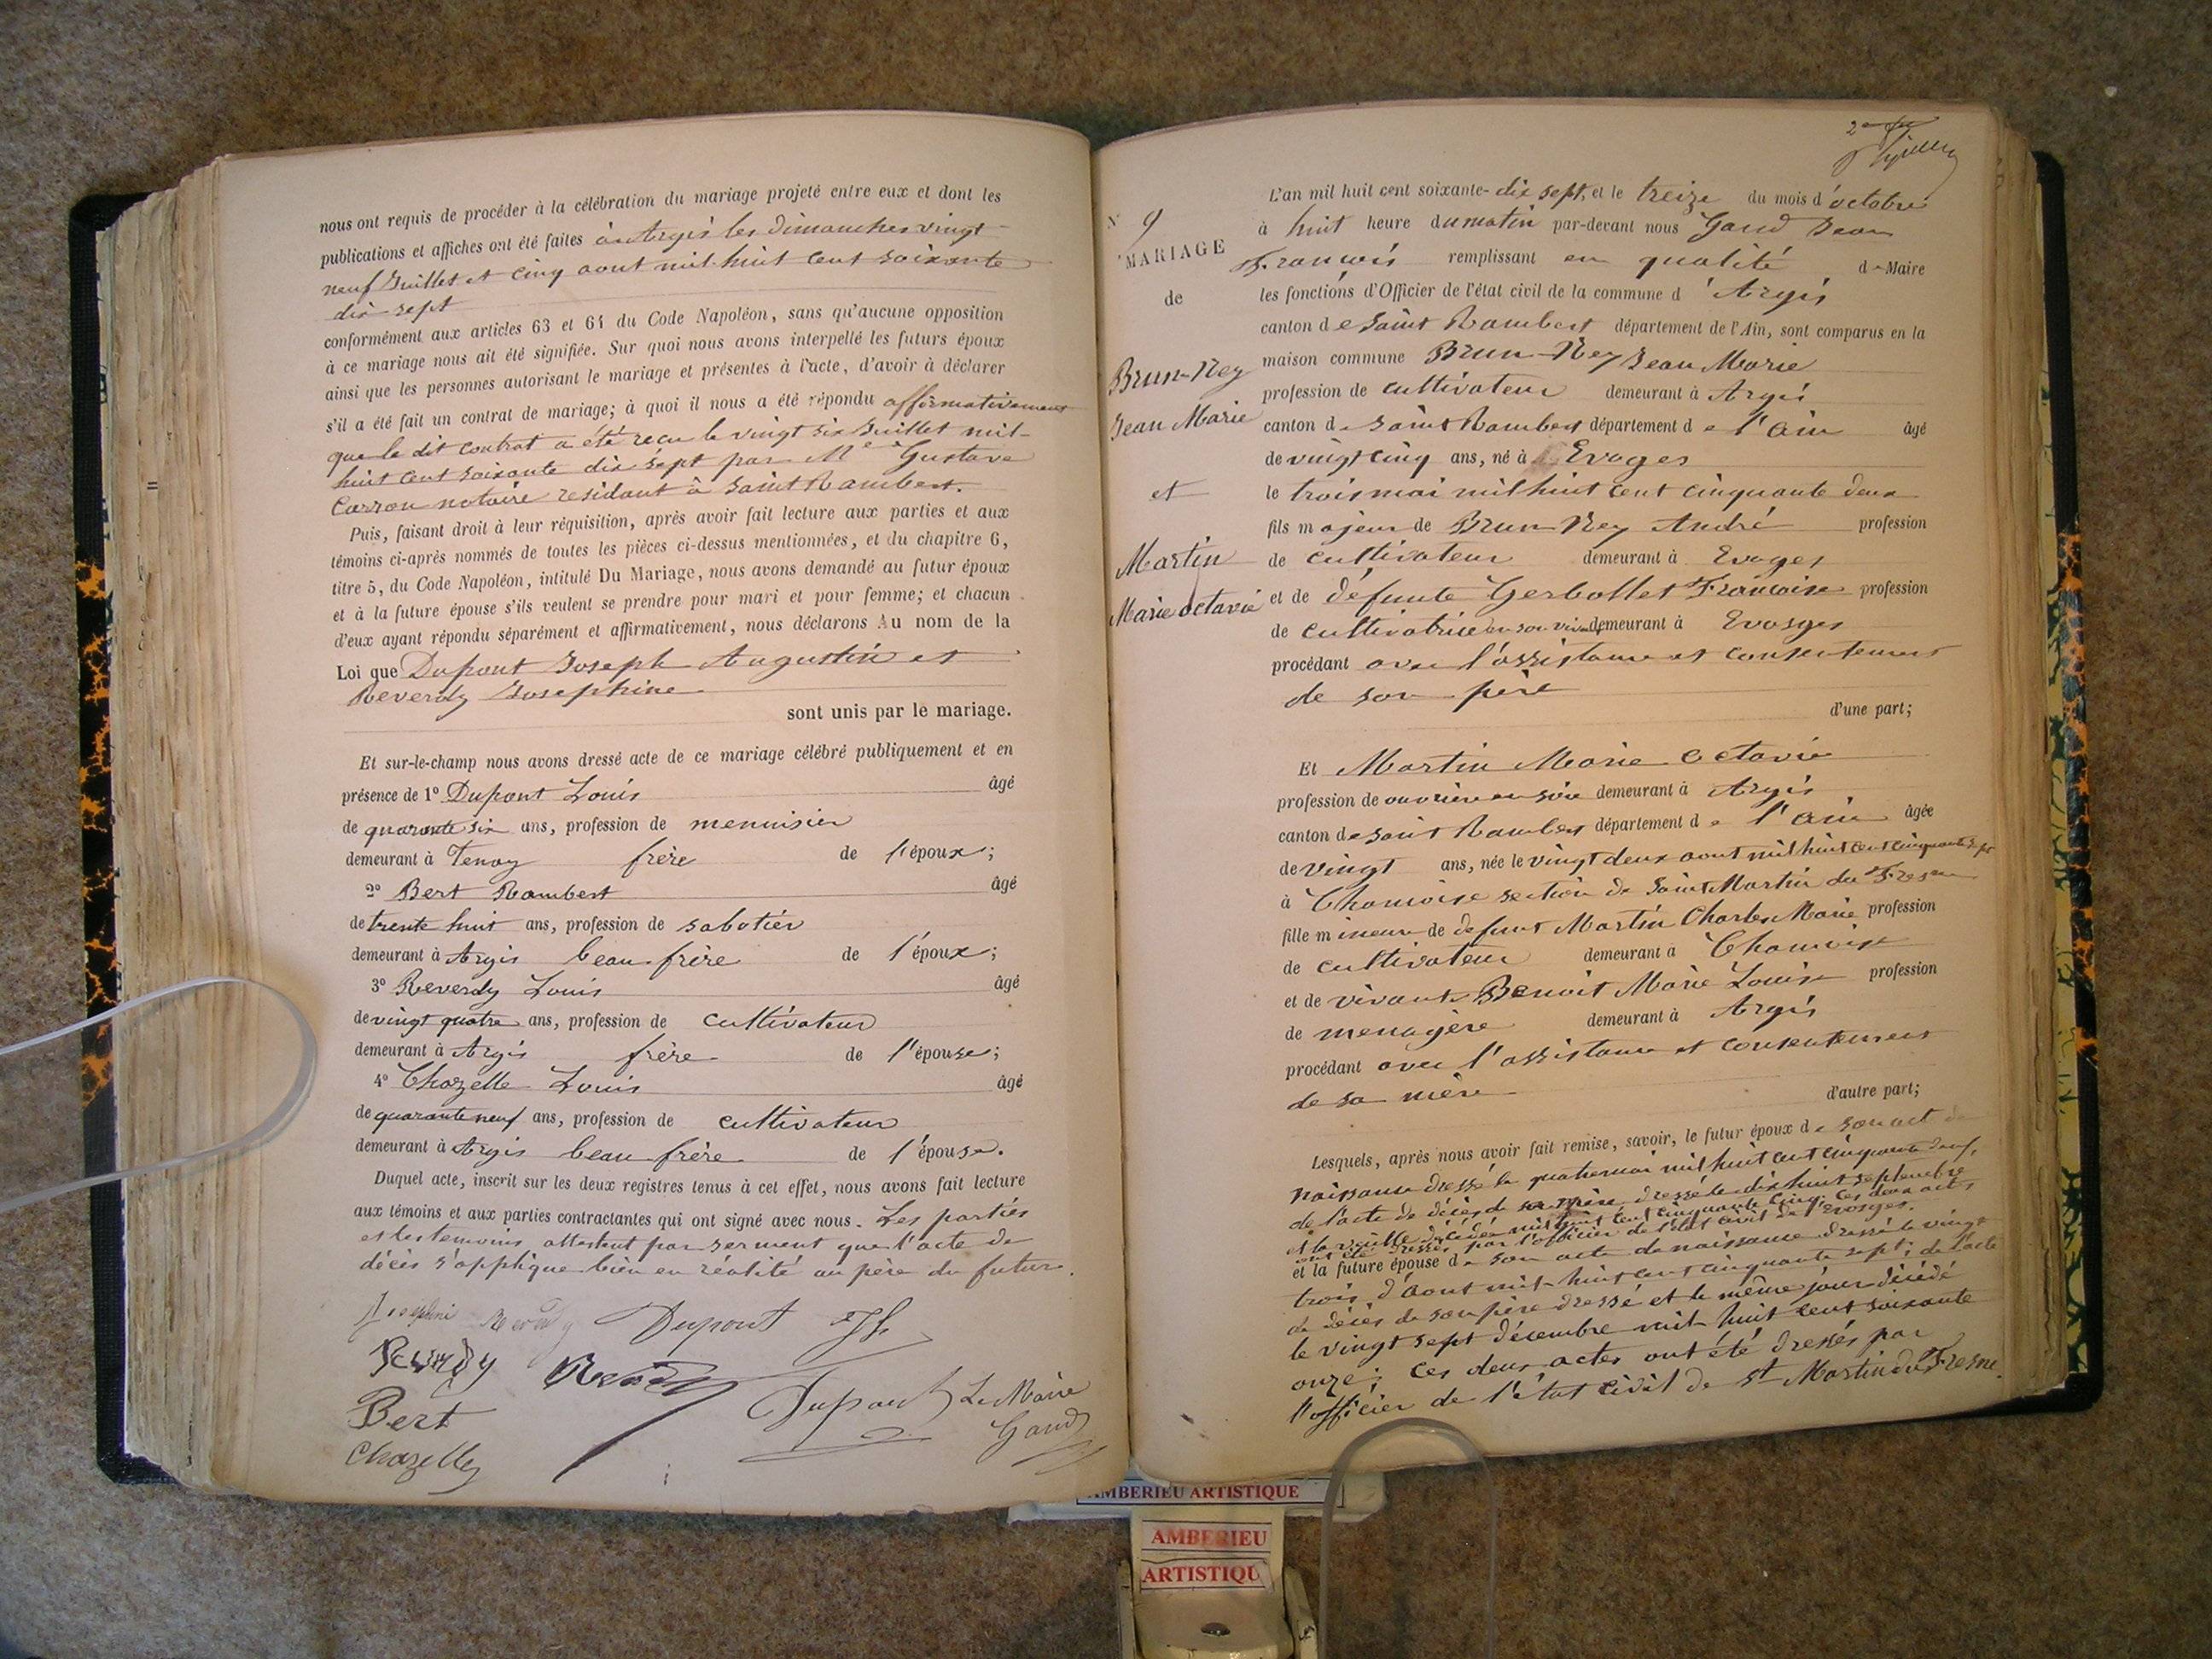 nous ont requis de procéder à la célébration du mariage projeté entre eux et dont les
publications et affiches ont été faites à Argis les dimanches vingt
neuf Juillet et cinq aout mil huit cent soixante
dix sept
conformément aux articles 63 et 64 du Code Napoléon, sans qu'aucune opposition
à ce mariage nous ait été signifiée. Sur quoi nous avons interpellé les futurs époux
ainsi que les personnes autorisant le mariage et présentes à l'acte, d'avoir à déclarer
s'il a été fait un contrat de mariage; à quoi il nous a été répondu affirmativement
que le dit contrat a été recu le vingt six Juillet mil
huit cent soixante dix sept par Me Gustave
Carron notaire residant à Saint Rambert.
Puis, faisant droit à leur réquisition, après avoir fait lecture aux parties et aux
témoins ci-après nommés de toutes les pièces ci-dessus mentionnées, et du chapitre 6,
titre 5, du Code Napoléon, intitulé Du Mariage, nous avons demandé au futur époux
et à la future épouse s'ils veulent se prendre pour mari et pour femme; et chacun
d'eux ayant répondu séparément et affirmativement, nous déclarons Au nom de la
Loi que Dupont Joseph Augustin et
Reverdy Josephine
sont unis par le mariage.
Et sur-le-champ nous avons dressé acte de ce mariage célébré publiquement et en
présence de 1° Dupont Louis âgé
de quarante six ans, profession de menuisier
demeurant à Tenay frère de l'époux;
2° Bert Rambert âgé
de trente huit ans, profession de sabotier
demeurant à Argis beau frère de l'époux;
3° Reverdy Louis âgé
de vingt quatre ans, profession de cultivateur
demeurant à Argis frère de l'épouse;
4° Chazelle Louis âgé
de quarante neuf ans, profession de cultivateur
demeurant à Argis beau frère de l'épouse.
Duquel acte, inscrit sur les deux registres tenus à cet effet, nous avons fait lecture
aux témoins et aux parties contractantes qui ont signé avec nous. Les parties
et les temoins attestent par serment que l'acte de
décès s'applique bien en réalité au père du futur.
Josephine Reverdy Dupont Jh
Reverdy Reverdy
Dupont Le Maire
Bert Gand
Chazelle
N° 9
MARIAGE
de
Brun-Ney
Jean Marie
et
Martin
Marie octavie
L'an mil huit cent soixante-dix sept, et le treize du mois d'octobre
à huit heure du matin par-devant nous Gand Jean
Francois remplissant en qualité de Maire
les fonctions d'Officier de l'état civil de la commune d'Argis
canton de Saint Rambert département de l'Ain, sont comparus en la
maison commune Brun-Ney Jean Marie
profession de cultivateur demeurant à Argis
canton de Saint Rambert département de l'ain âgé
de vingt cinq ans, né à Evoges
le trois mai mil huit cent cinquante deux
fils majeur de Brun-Ney André profession
de cultivateur demeurant à Evoges
et de défunte Gerbollet Francoise profession
de cultivatrice en son vivant demeurant à Evosges
procédant avec l'assistance et consentement
de son père
d'une part;
Et Martin Marie Octavie
profession de ouvrière en soie demeurant à Argis
canton de Saint Rambert département de l'ain âgée
de vingt ans, née le vingt deux aout mil huit cent cinquante sept
à Chamoise section de Saint Martin du Fresne
fille mineure de defunt Martin Charles Marie profession
de cultivateur demeurant à Chamoise
et de vivante Benoit Marie Louise profession
de menagère demeurant à Argis
procédant avec l'assistance et consentement
de sa mère d'autre part;
Lesquels, après nous avoir fait remise, savoir, le futur époux de son act de
naissance dressé le quatre mai mil huit cent cinquante deux,
de l'acte de décès de sa mère dressé le dix huit septembre
et la veille décédée mil huit cent cinquante cinq; ces deux actes
ont été dressés par l'officier de l'état civil de l'Evosges.
et la future épouse de son acte de naissance dressé le vingt
trois d'aout mil huit cent cinquante sept; de l'acte
de décès de son père dressé et le même jour décédé
le vingt sept décembre mil huit cent soixante
onze; ces deux actes ont été dressés par
l'officier de l'état civil de St Martin du Fresne.
AMBERIEU ARTISTIQUE
AMBERIEU
ARTISTIQU